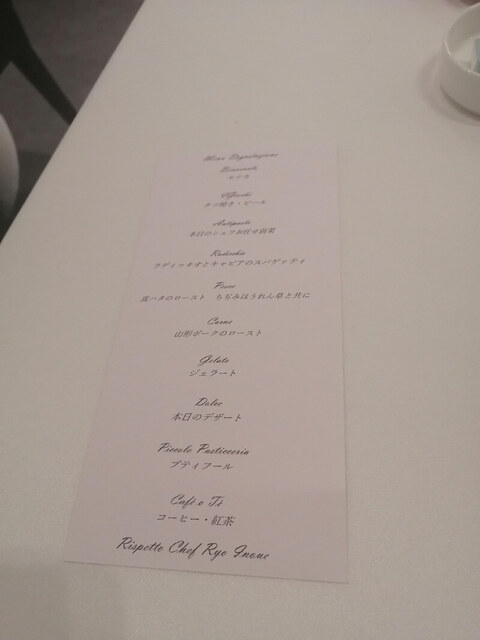 Menu Degustazione
Benvenuto
モナカ
Stuzzichi
タコ焼き・ビール
Antipasto
本日のシェフお任せ前菜
Radicchio
ラディッキオとキャビアのスパゲッティ
Pesce
真ハタのロースト　ちぢみほうれん草と共に
Carne
山形ポークのロースト
Gelato
ジェラート
Dolce
本日のデザート
Piccola Pasticceria
プティフール
Café o Tè
コーヒー・紅茶
Rispetto Chef Ryo Inoue